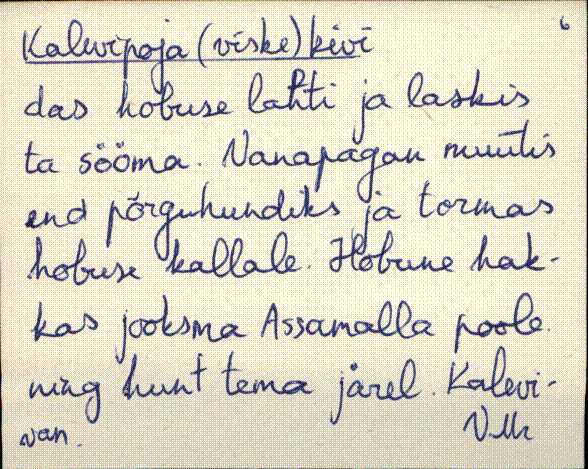 6
Kalevipoja (viske) kivi
das hobuse lahti ja laskis
ta sööma. Vanapagan muutis
end põrguhundiks ja tormas
hobuse kallale. Hobune hak-
kas jooksma Assamalla poole
ning hunt tema järel. Kalevi-
van. VMr